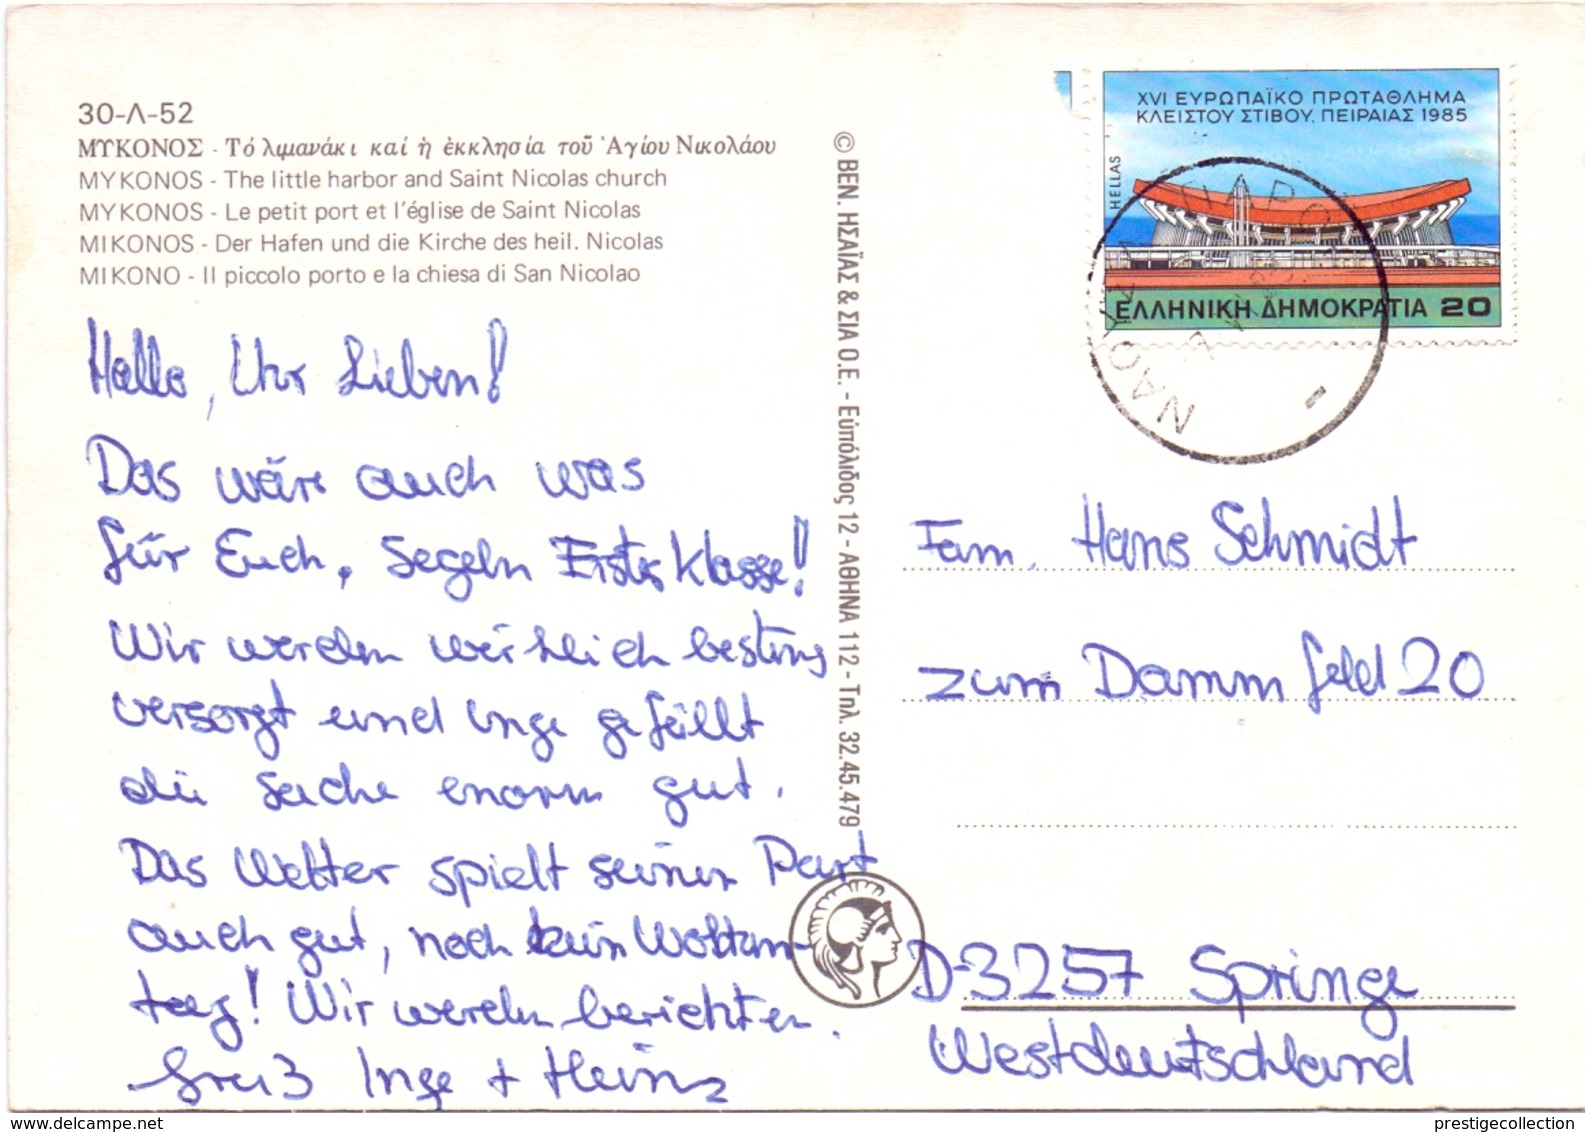 30-Λ-52
ΜΥΚΟΝΟΣ - Τό λιμανάκι καί ἡ ἐκκλησία τοῦ Ἁγίου Νικολάου
MYKONOS - The little harbor and Saint Nicolas church
MYKONOS - Le petit port et l'église de Saint Nicolas
MIKONOS - Der Hafen und die Kirche des heil. Nicolas
MIKONO - Il piccolo porto e la chiesa di San Nicolao
Hallo, Ihr Lieben!
Das wäre auch was
für Euch, Segeln Erster Klasse!
Wir werden wirklich bestens
versorgt und Inge gefällt
die Sache enorm gut.
Das Wetter spielt seinen Part
auch gut, noch kein Wolken-
tag! Wir werden berichten.
Gruß Inge + Heinz
© ΒΕΝ. ΗΣΑΪΑΣ & ΣΙΑ Ο.Ε. - Εὐπόλιδος 12 - ΑΘΗΝΑ 112 - Τηλ. 32.45.479
XVI ΕΥΡΩΠΑΪΚΟ ΠΡΩΤΑΘΛΗΜΑ
ΚΛΕΙΣΤΟΥ ΣΤΙΒΟΥ, ΠΕΙΡΑΙΑΣ 1985
HELLAS
ΕΛΛΗΝΙΚΗ ΔΗΜΟΚΡΑΤΙΑ 20
Fam. Hans Schmidt
zum Dammfeld 20
D-3257 Springe
Westdeutschland
www.delcampe.net
prestigecollection